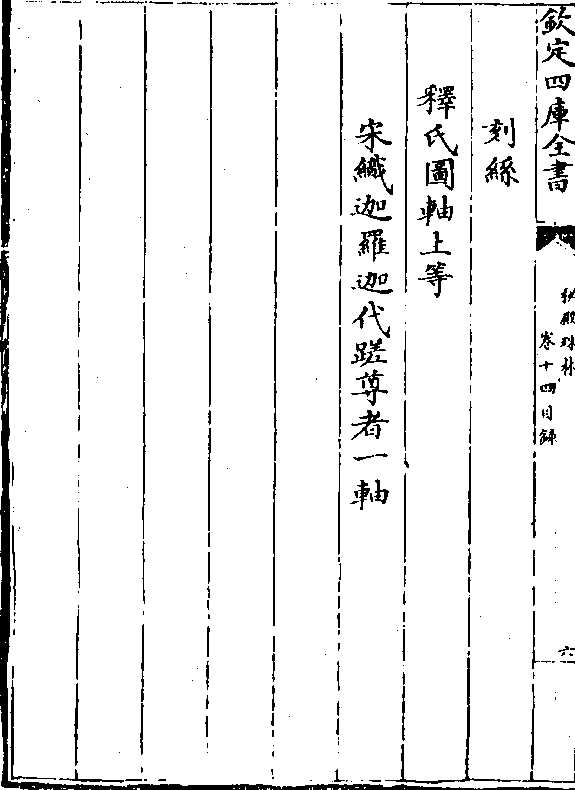 欽定四庫全書
秘殿珠林
卷十四目錄
六
刻絲
釋氏圖軸上等
宋織迦羅迦代蹉尊者一軸